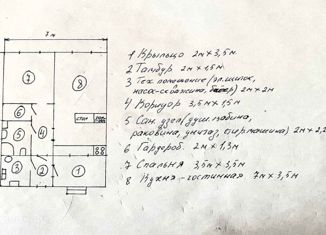 7 м
7
8
СТОЛ
6
5
4
3
2
1
1 Крыльцо 2м х 3,5м
2 Тамбур 2м х 1,5м.
3 Тех. помещение /эл.щиток,
насос-скважина, 2м х 2м
4 Коридор 3,5м х 1,5м
5 Сан. узел /душ.кабина,
раковина, унитаз, стир.машина) 2м х 2,2
6 Гардероб. 2м х 1,3м
7 Спальня 3,5м х 3,5м
8 Кухня-гостинная 7м х 3,5м